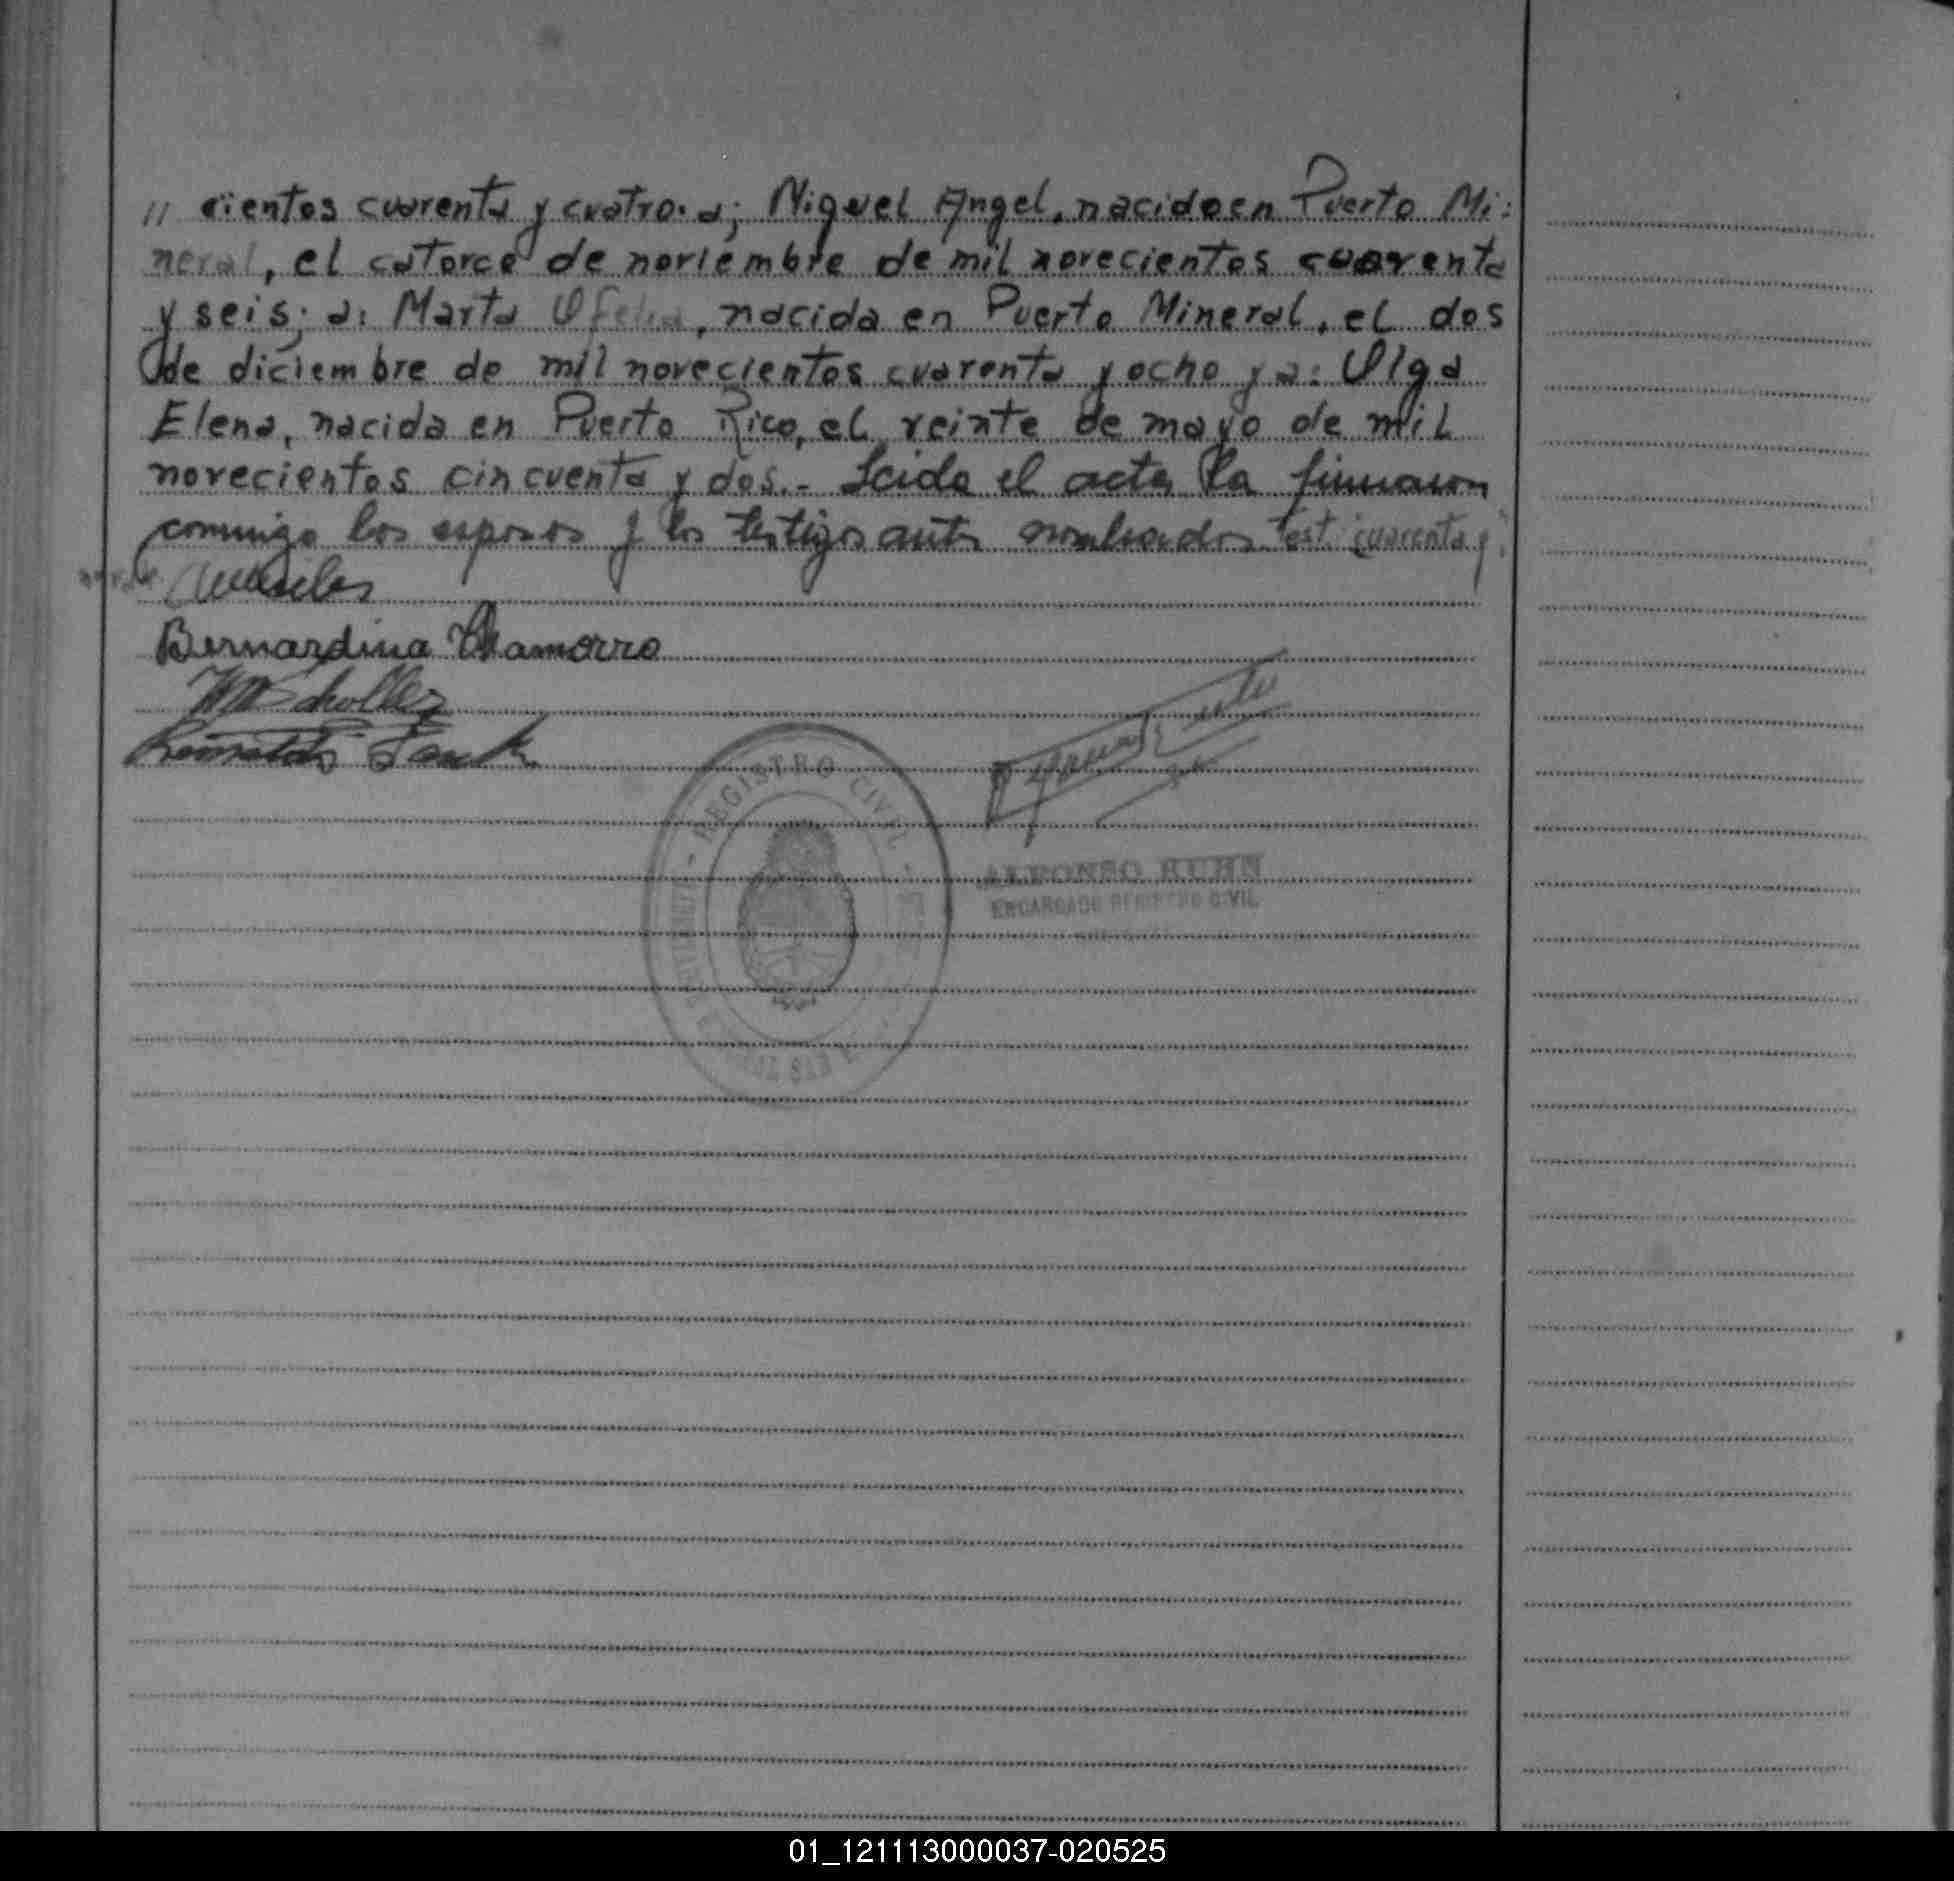 " cientos cuarenta y cuatro. a; Miguel Angel, nacido en Puerto Mi:
neral, el catorce de noviembre de mil novecientos cuarenta
y seis; a: Marta Ofelia, nacida en Puerto Mineral, el dos
de diciembre de mil novecientos cuarenta y ocho y a: Olga
Elena, nacida en Puerto Rico, el veinte de mayo de mil
novecientos cincuenta y dos.- Leida el acta la firmaron
conmigo los esposos y los testigos antes nombrados test. cuarenta y
Bernardina Chamorro
REGISTRO CIVIL
ALFONSO KUHN
ENCARGADO REGISTRO CIVIL
01_121113000037-020525